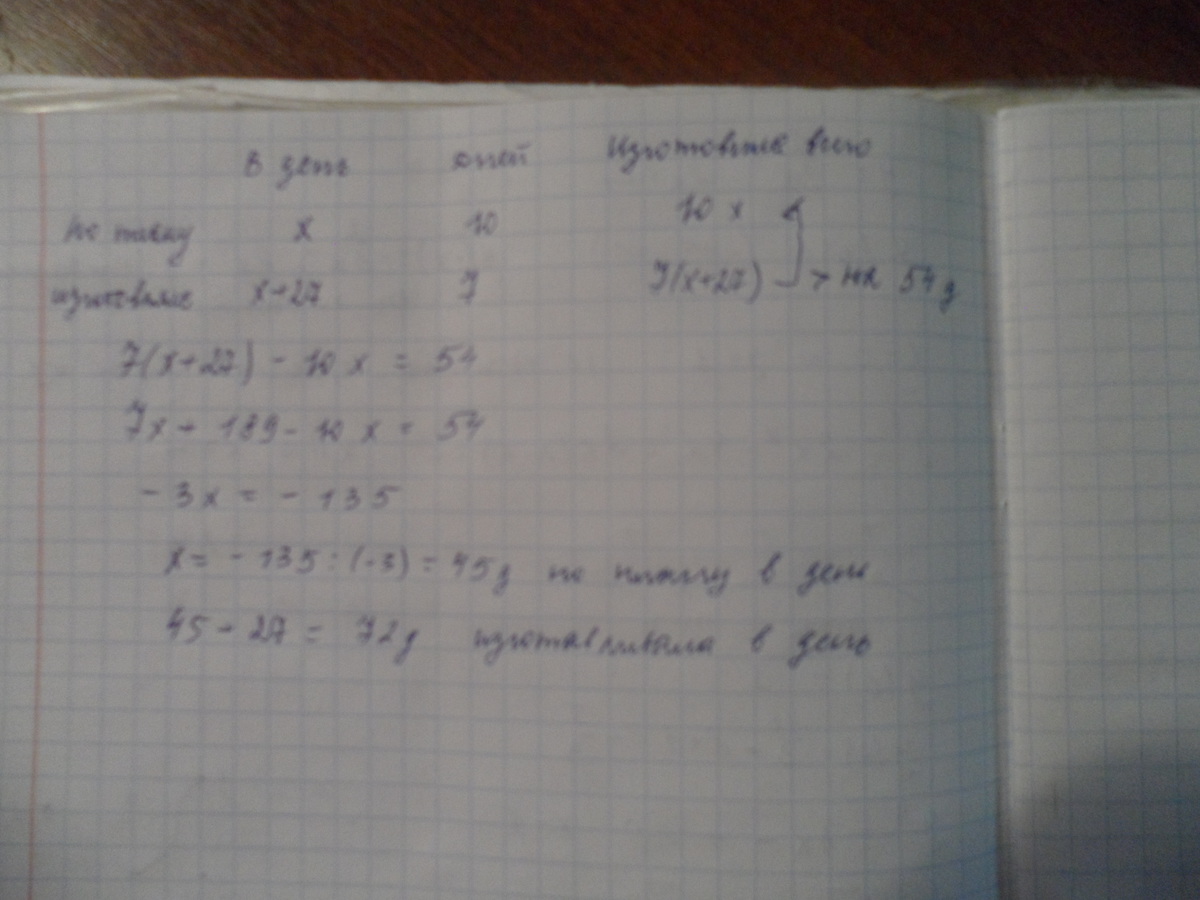 В день дней Изготовила всего
По плану х 10 10 х
изготовила х+27 7 7(х+27) > на 54 д
7(х+27) - 10 х = 54
7х + 189 - 10 х = 54
- 3х = - 135
х = - 135 : (-3) = 45 д по плану в день
45 + 27 = 72 д изготавливала в день